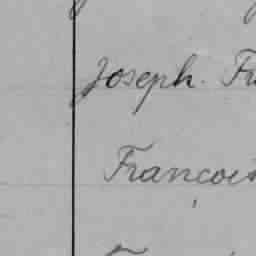 Joseph. Fr
François